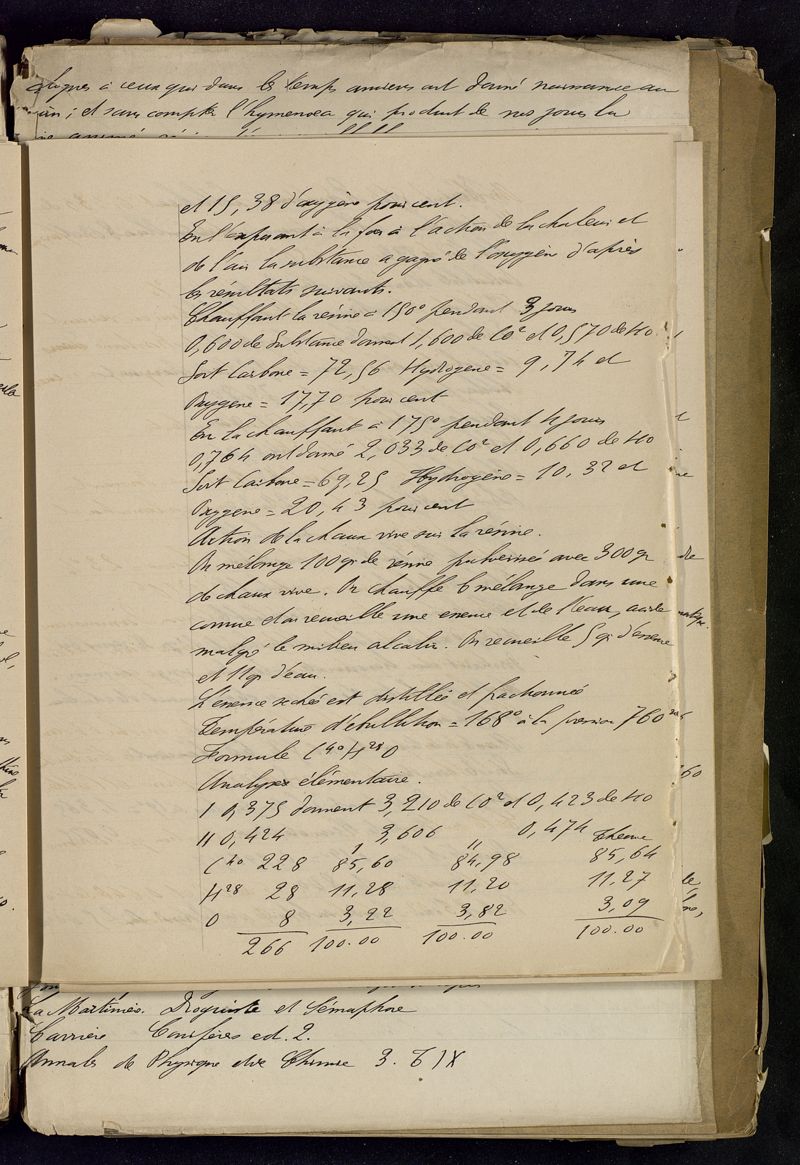 à ceux qui dans les temps anciens ont donné naissance au
; et sans compter l'hymenoea qui produit de nos jours la
et 15,38 d'oxygène pour cent.
En l'exposant à la fois à l'action de la chaleur et
de l'air la substance a gagné de l'oxygène d'après
les résultats suivants.
Chauffant la résine à 150° pendant 3 jours
0,600 de substance donnent 1,600 de CO² et 0,570 de HO
Soit Carbone = 72,56 Hydrogène = 9,74 et
Oxygene = 17,70 pour cent
En la chauffant à 175° pendant 4 jours
0,764 ont donné 2,033 de CO² et 0,660 de HO
Soit Carbone = 69,25 Hydrogène = 10,32 et
Oxygene = 20,43 pour cent
Action de la chaux vive sur la résine.
On mélange 100 gr de résine pulvérisée avec 300 gr
de chaux vive. On chauffe le mélange dans une
cornue et on recueille une essence et de l'eau, acide
malgré le milieu alcalin. On recueille 5 gr d'essence
et 11 gr d'eau.
L'essence sechée est distillée et fractionnée
Température d'ébullition = 168° à la pression 760 mm
Formule C⁴⁰H²⁸O
Analyse élémentaire.
I 0,375 donnent 3,210 de CO² et 0,423 de HO
II 0,424 3,606 0,474
I II Théorie
C⁴⁰ 228 85,60 84,98 85,64
H²⁸ 28 11,28 11,20 11,27
O 8 3,22 3,82 3,09
266 100.00 100.00 100.00
La Martinière. Droguiste et Sémaphore
Carrière Conifères ed. 2.
Annales de Physique et de Chimie 3. T IX